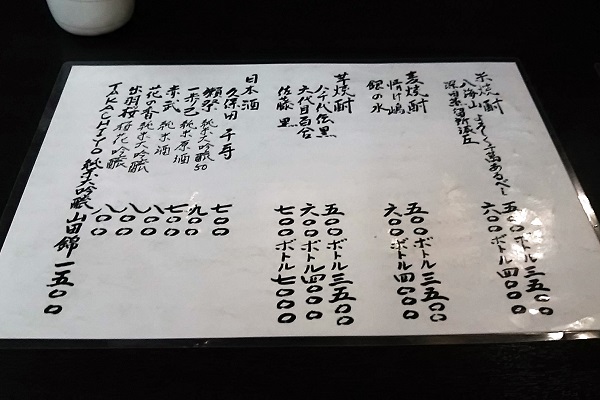 米焼酎
八海山 よろしく千萬あるべし 五〇〇 ボトル 三五〇〇
六〇〇 ボトル 四〇〇〇
麦焼酎
情け嶋 五〇〇 ボトル 三五〇〇
銀の水 六〇〇 ボトル 四〇〇〇
芋焼酎
八千代伝 黒 五〇〇 ボトル 三五〇〇
六代目百合 六〇〇 ボトル 四〇〇〇
佐藤 黒 七〇〇 ボトル 七〇〇〇
日本酒
久保田 千寿 七〇〇
獺祭 純米大吟醸50 九〇〇
一歩己 純米原酒 七〇〇
赤武 純米酒 八〇〇
花の香 純米大吟醸 八〇〇
出羽桜 桜花吟醸 八〇〇
TAKACHIYO 純米大吟醸 山田錦 一五〇〇